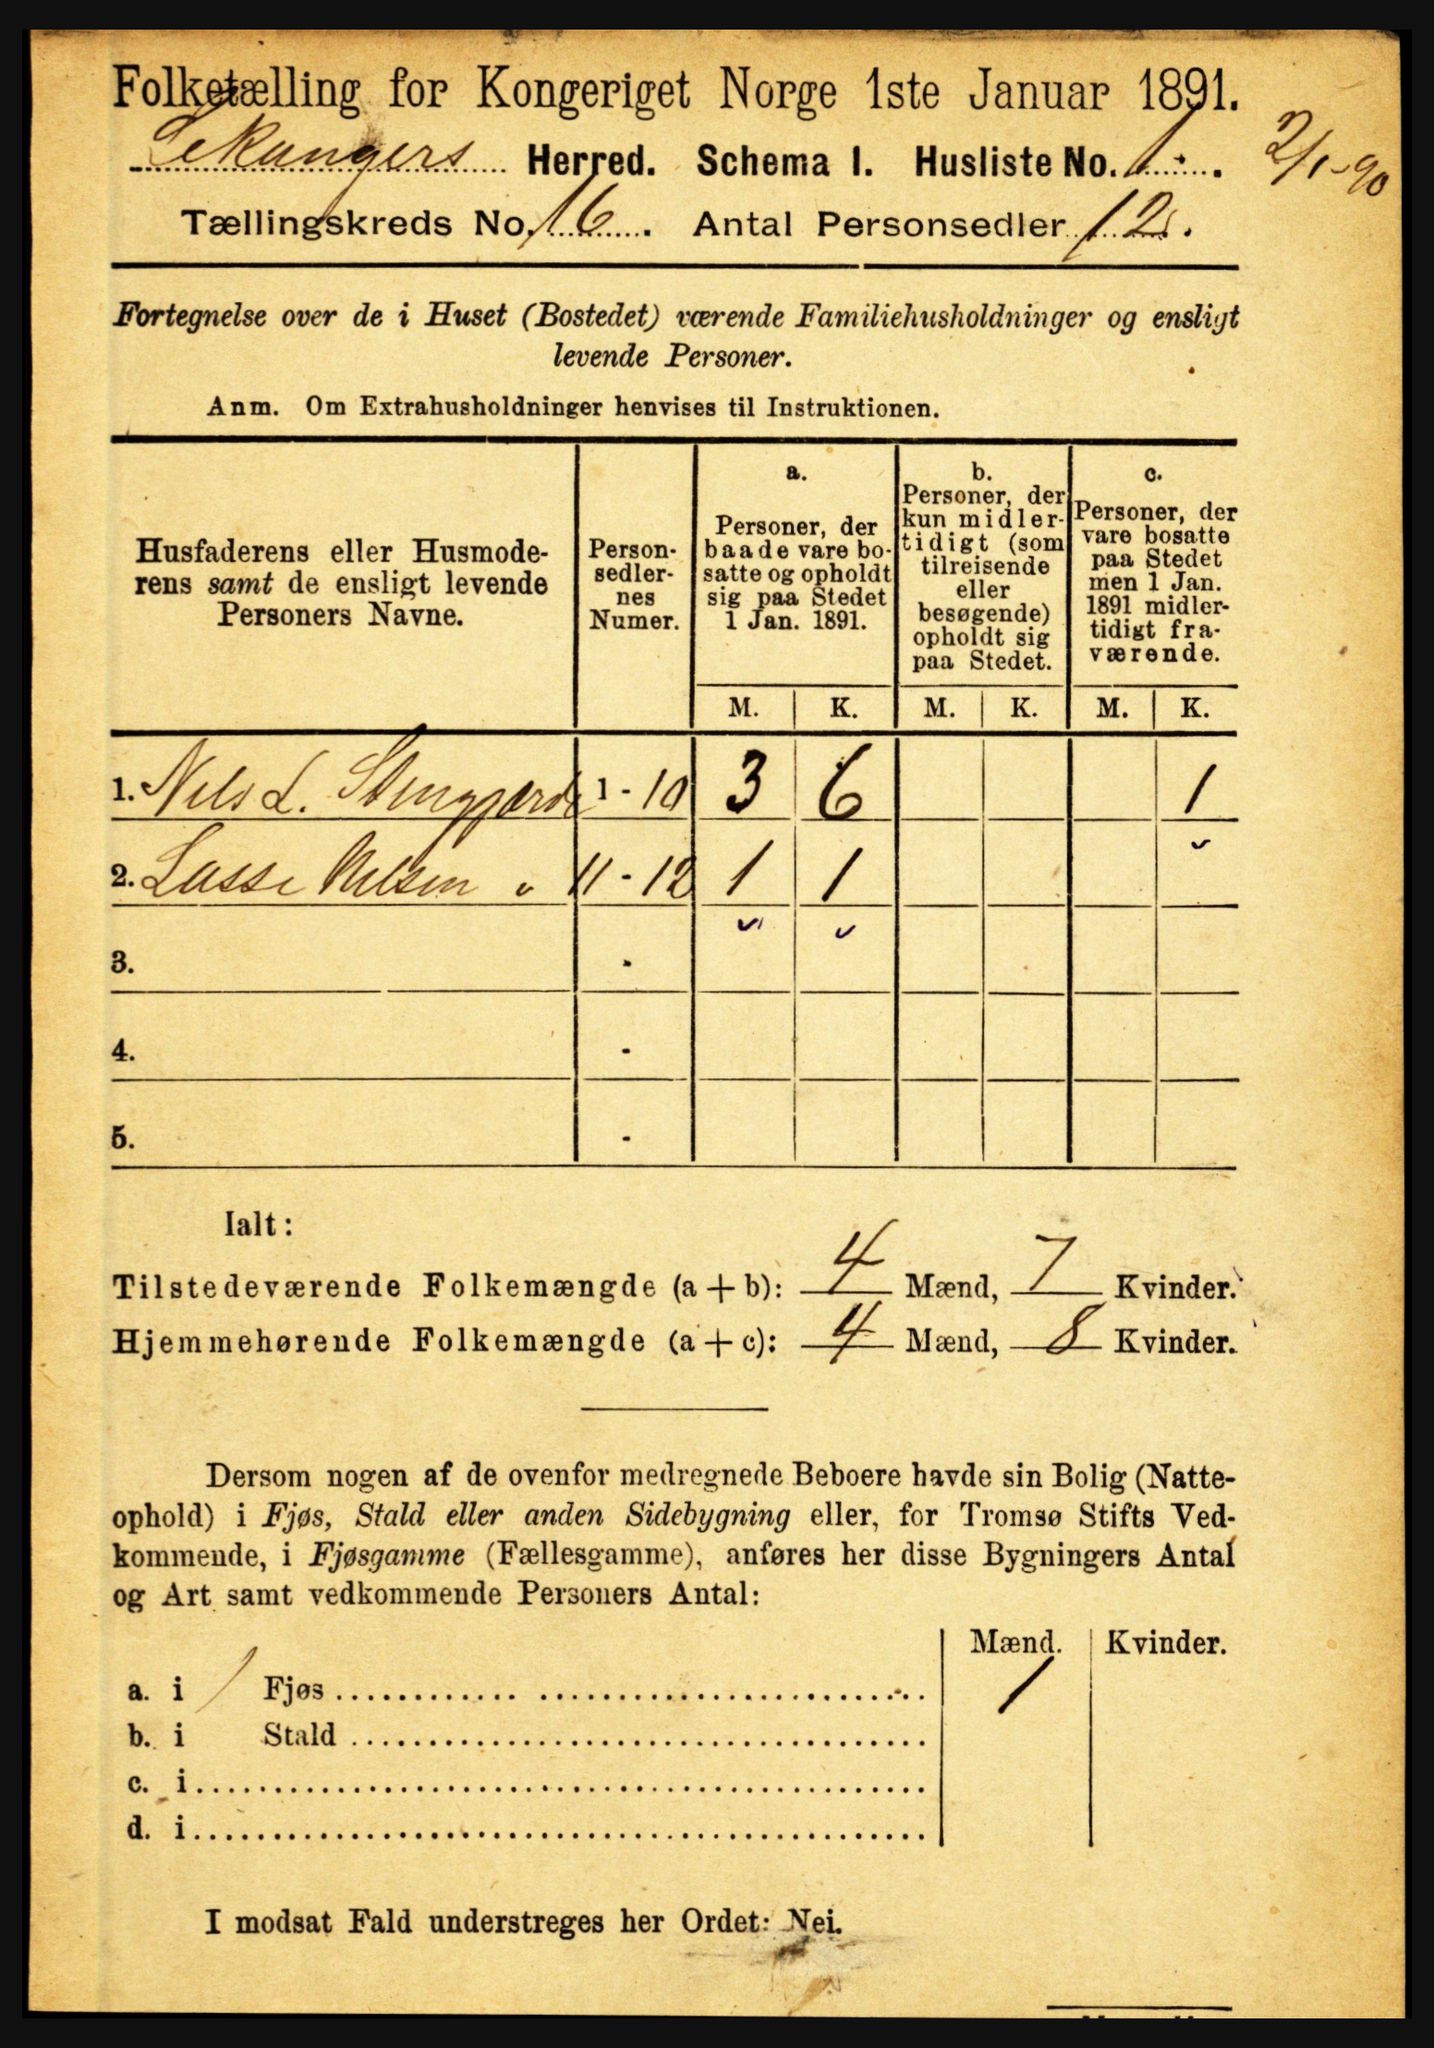 Folketælling for Kongeriget Norge 1ste Januar 1891.
Lekangers Herred. Schema I. Husliste No. 1.
2/1-90
Tællingskreds No. 16. Antal Personsedler 12.
Fortegnelse over de i Huset (Bostedet) værende Familiehusholdninger og ensligt
levende Personer.
Anm. Om Extrahusholdninger henvises til Instruktionen.
Husfaderens eller Husmode-
rens samt de ensligt levende
Personers Navne.
Person-
sedler-
nes
Numer.
a.
Personer, der
baade vare bo-
satte og opholdt
sig paa Stedet
1 Jan. 1891.
b.
Personer, der
kun midler-
tidigt (som
tilreisende
eller
besøgende)
opholdt sig
paa Stedet.
c.
Personer, der
vare bosatte
paa Stedet
men 1 Jan.
1891 midler-
tidigt fra-
værende.
M. K. M. K. M. K.
1. Nils L. 1 - 10 3 6 1
2. Lasse Nilsen " 11 - 12 1 1
3. -
4. -
5. -
Ialt:
Tilstedeværende Folkemængde (a + b): 4 Mænd, 7 Kvinder.
Hjemmehørende Folkemængde (a + c): 4 Mænd, 8 Kvinder.
Dersom nogen af de ovenfor medregnede Beboere havde sin Bolig (Natte-
ophold) i Fjøs, Stald eller anden Sidebygning eller, for Tromsø Stifts Ved-
kommende, i Fjøsgamme (Fællesgamme), anføres her disse Bygningers Antal
og Art samt vedkommende Personers Antal:
Mænd. Kvinder.
a. i 1 Fjøs 1
b. i Stald
c. i
d. i
I modsat Fald understreges her Ordet: Nei.